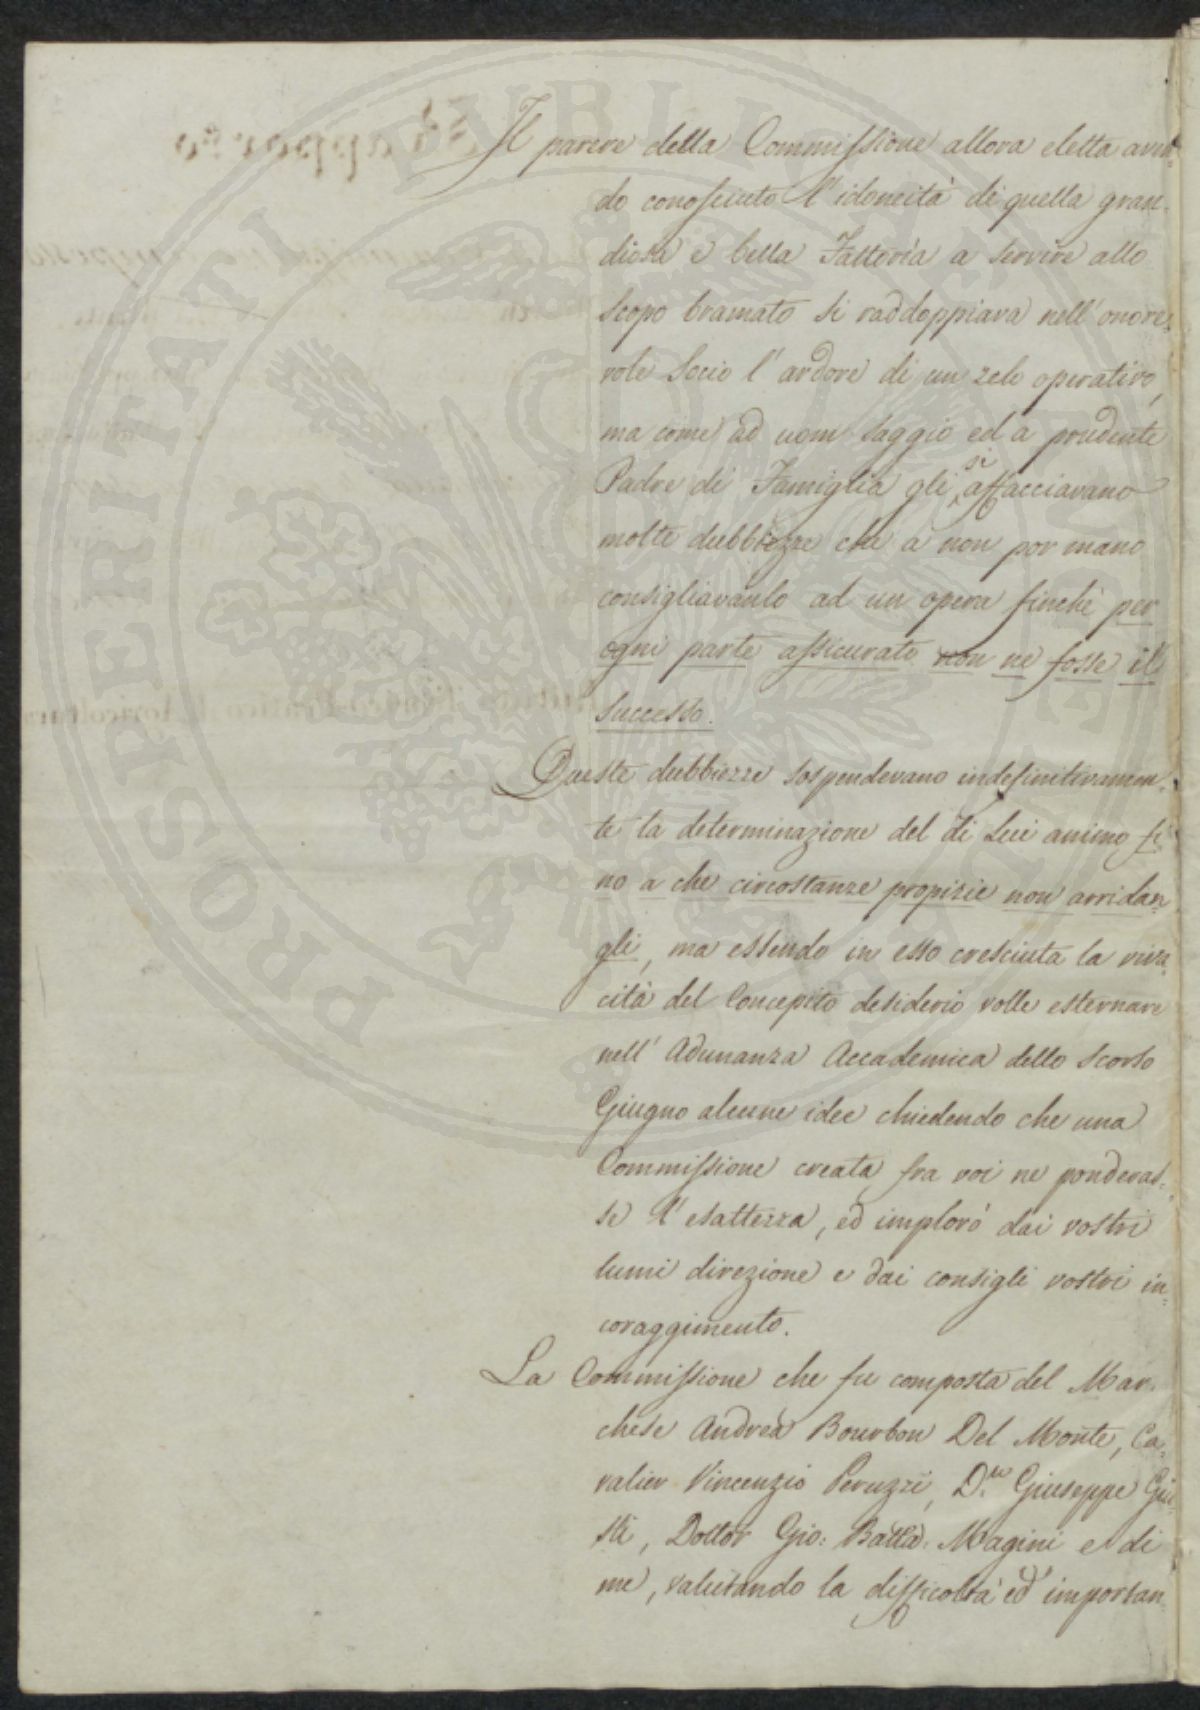 Il parere della Commissione allora eletta aven-
do conosciuto l'idoneità di quella gran-
diosa e bella Fattoria a servire allo
scopo bramato si raddoppiava nell'onore-
vole Socio l'ardore di un zelo operativo,
ma come ad uom saggio ed a prudente
Padre di Famiglia gli si affacciavano
molte dubbiezze che a non por mano
consigliavanlo ad un opera finchè per
ogni parte assicurato non ne fosse il
successo.
Queste dubbiezze sospendevano indefinitivamen-
te la determinazione del di Lui animo fi
no a che circostanze propizie non arridan
gli, ma essendo in esso cresciuta la viva-
cità del Concepito desiderio volle esternare
nell'Adunanza Accademica dello scorso
Giugno alcune idee chiedendo che una
Commissione creata fra voi ne ponderas-
se l'esattezza, ed implorò dai vostri
lumi direzione e dai consigli vostri in-
coraggimento.
La Commissione che fu composta del Mar-
chese Andrea Bourbon Del Monte, Ca-
valier Vincenzio Peruzzi, D.re Giuseppe Giu-
sti, Dottor Gio: Batta: Magini e di
me, valutando la difficoltà ed importan
PROSPERITATI PUBLICAE AUGENDAE